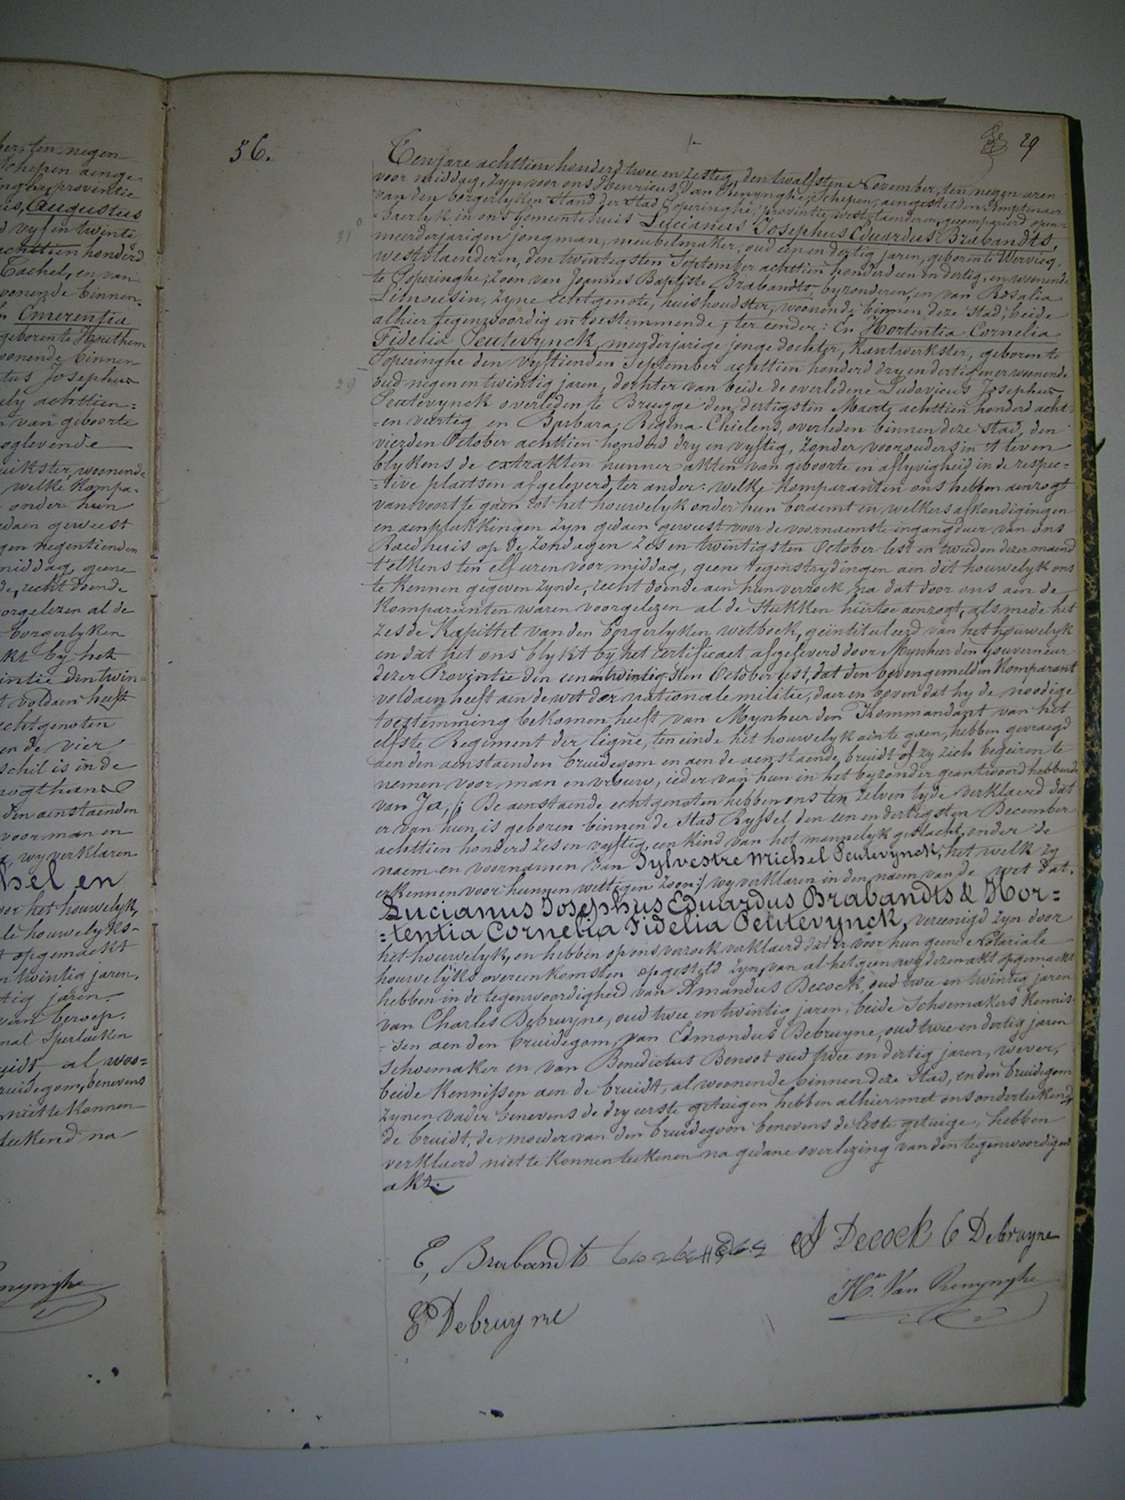 29
56.
Ten jare achttien honderd twee en zestig, den twalfsten November, ten negen uren
voor middag, zyn voor ons Henricus Van Renynghe, Schepen, aengestelden Amptenaer
van den borgerlyken stand der stad Poperinghe, provintie westvlaenderen, gecompareerd open-
baerlyk in ons gemeentehuis Lucianus Josephus Eduardus Brabandts,
31
meerderjarigen jongman, meubelmaker, oud een en dertig jaren, geboren te Wervicq,
westvlaenderen, den twintigsten September achttien honderd een en dertig, en wonende
te Poperinghe, zoon van Joannes Baptiste Brabandts byzonderen, en van Rosalia
Limousin, zyne echtgenote, huishoudster, woonende binnen deze stad, beide
alhier tegenwoordig en toestemmende, ter eender: En Hortentia Cornelia
Fidelia Peutevynck, meerderjarige jonge dochter, kantwerkster, geboren te
Poperinghe den vyftienden September achttien honderd dry en dertig en er wonende
29
oud negen en twintig jaren, dochter van beide de overledene Ludovicus Josephus
Peutevynck overleden te Brugge den dertigsten Maerte achttien honderd acht
en veertig en Barbara, Regina Chielens, overleden binnen deze stad, den
vierden October achttien honderd dry en vyftig, zonder voorouders in 't leven
blykens de extrakten hunner akten van geboorte en aflyvigheid in de respec-
tive plaetsen afgeleverd, ter ander: welke komparanten ons hebben aenzogt
van voorts te gaen tot het houwelyk onder hun beraemt en welkers afkondigingen
en aenplakkingen zyn gedaen geweest voor de voornaemste ingangdeur van ons
Raedhuis op de zondagen zes en twintigsten October lest en tweeden dezer maend
t'elkens ten elf uren voor middag, geene tegenstrydingen aen dit houwelyk ons
te kennen gegeven zynde, recht doende aen hun verzoek na dat door ons aen de
komparanten waren voorgelezen al de stukken hiertoe aenzogt, als mede het
zesde Kapittel van den borgerlyken wetboek, geintituleerd van het houwelyk
en dat het ons blykt by het certificaet afgeleverd door Mynheer den Gouverneur
dezer Provintie den een en twintigsten October lest, dat den bovengemelden komparant
voldaen heeft aen de wet der nationale militie, daer en boven dat hy de noodige
toestemming bekomen heeft van Mynheer den Kommandant van het
elfste Regiment der ligne, ten einde het houwelyk aen te gaen, hebben gevraegd
aen den aenstaenden bruidegom en aen de aenstaende bruidt of zy zich begeiren te
nemen voor man en vrouw, ieder van hun in het byzonder geantwoord hebbende
van Ja, De aenstaende echtgenoten hebben ons ten zelven tyde verklaerd dat
er van hun is geboren binnen de Stad Ryssel den een en dertigsten December
achttien honderd zes en vyftig, een kind van het mannelyk geslacht, onder de
naem en voornamen van Sylvestre Michel Peutevynck, het welk zy
erkennen voor hunnen wettigen zoon: wy verklaren in den naem van de wet dat
Lucianus Josephus Eduardus Brabandts & Hor-
tentia Cornelia Fidelia Peutevynck, vereenigd zyn door
het houwelyk, en hebben op ons verzoek verklaerd dat er voor hun geene Notariale
houwelyks overeenkomsten opgesteld zyn, van al hetgeen wy dezen akt opgemaekt
hebben in de tegenwoordigheid van Amandus Decock, oud twee en twintig jaren
van Charles Debruyne, oud twee en twintig jaren, beide Schoemakers kennis-
sen aen den bruidegom, van Edmondus Debruyne, oud twee en dertig jaren
schoemaker en van Benedictus Benoot oud twee en dertig jaren, wever,
beide kennissen aen de bruidt, al woonende binnen deze Stad, en den bruidegom
zynen vader benevens de dry eerste getuigen hebben alhier met ons onderteekend,
de bruidt, de moeder van den bruidegom benevens de leste getuige, hebben
verklaerd niet te konnen teekenen na gedane overlezing van den tegenwoordigen
akt.
E, Brabandts
A Decock C Debruyne
E Debruyne
Hri Van Renynghe